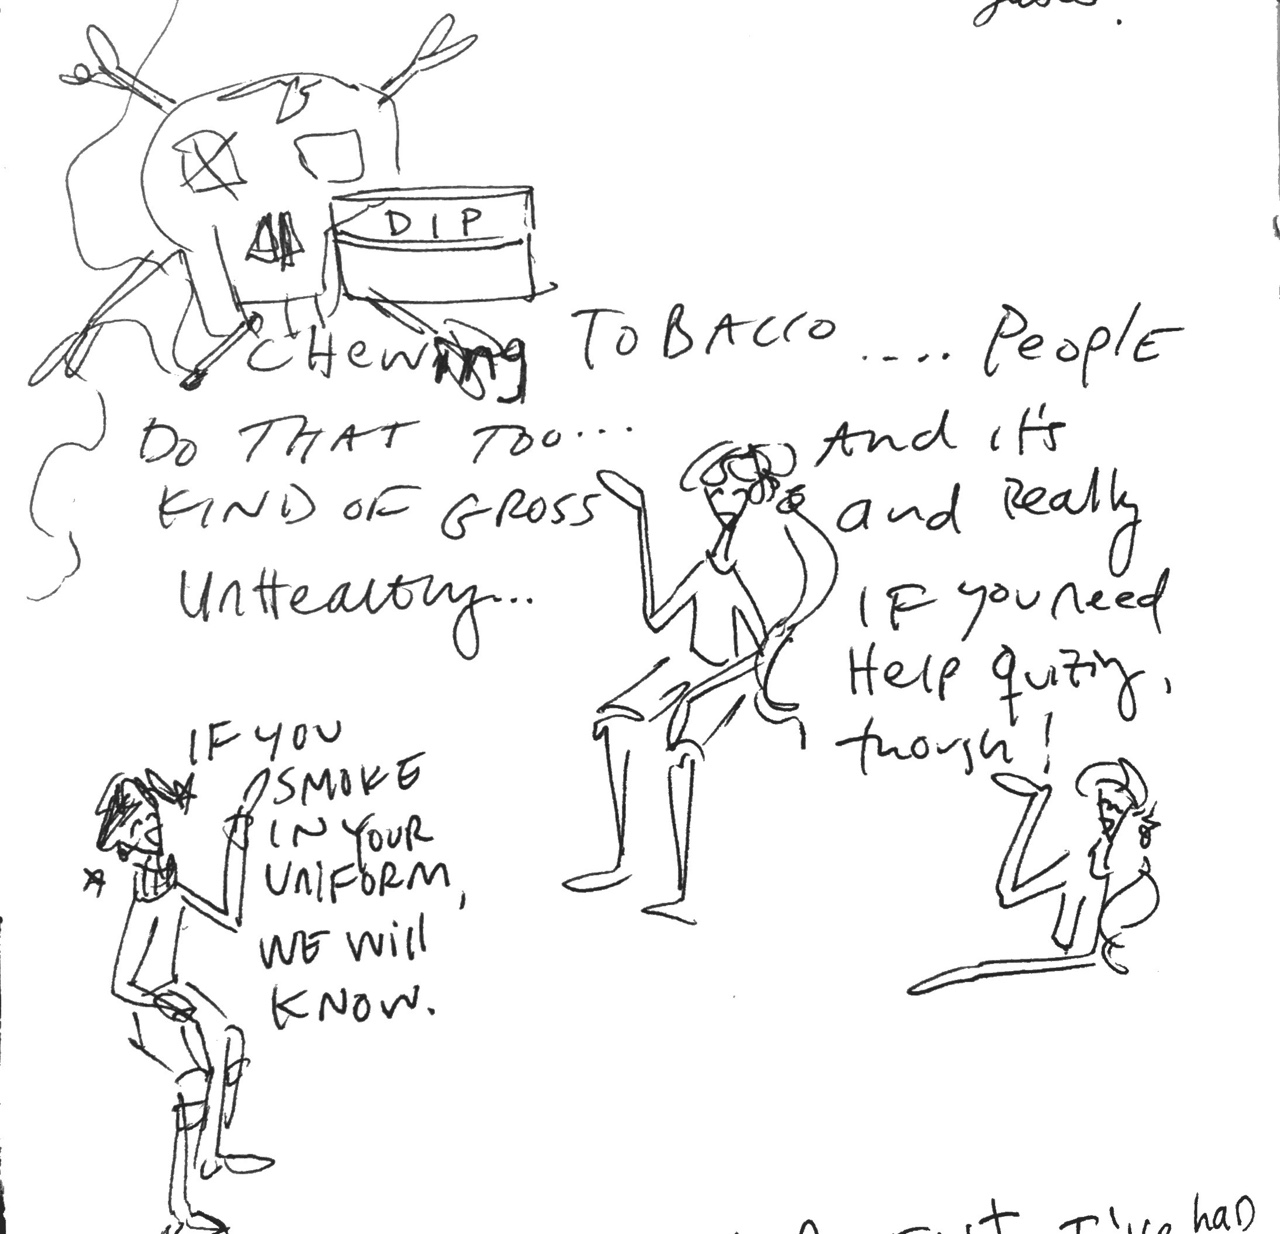 DIP
CHEWING TOBACCO .... PEOPlE
DO THAT TOO... And it's
KIND OF GROSS and Really
UnHealthy... IF you need
Help quiting,
though!
IF YOU
SMOKE
IN YOUR
UNIFORM,
WE Will
KNOW.
I've had